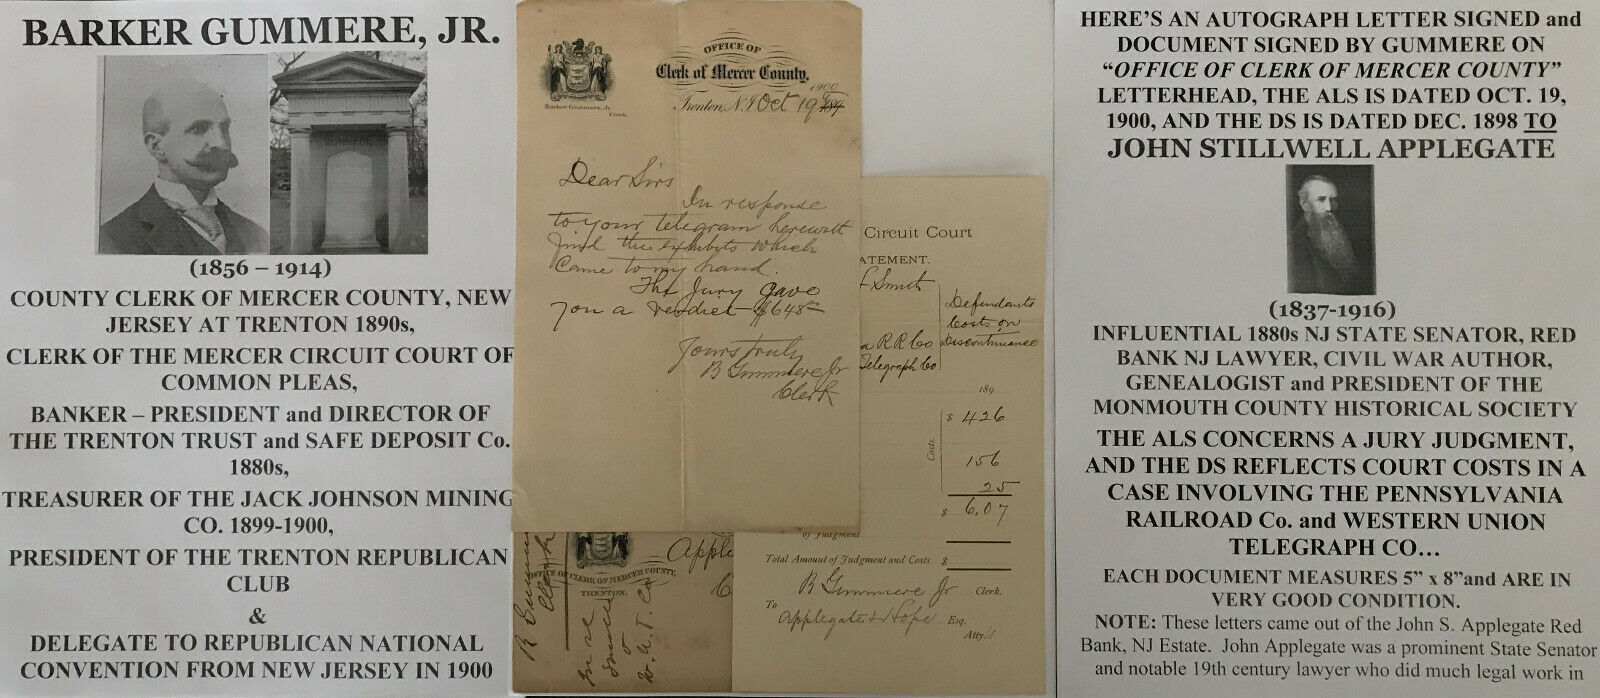 BARKER GUMMERE, JR.
(1856 – 1914)
COUNTY CLERK OF MERCER COUNTY, NEW
JERSEY AT TRENTON 1890s,
CLERK OF THE MERCER CIRCUIT COURT OF
COMMON PLEAS,
BANKER – PRESIDENT and DIRECTOR OF
THE TRENTON TRUST and SAFE DEPOSIT Co.
1880s,
TREASURER OF THE JACK JOHNSON MINING
CO. 1899-1900,
PRESIDENT OF THE TRENTON REPUBLICAN
CLUB
&
DELEGATE TO REPUBLICAN NATIONAL
CONVENTION FROM NEW JERSEY IN 1900
OFFICE OF
Clerk of Mercer County,
Barker Gummere, Jr.
Clerk.
1900
Trenton, N.J. Oct 19 189
Dear Sirs
In response
to your telegram herewith
find the exhibits which
came to my hand.
The Jury gave
you a verdict $648
Yours truly
B Gummere Jr
Clerk
Circuit Court
ATEMENT.
Smith
a R R Co
Telegraph Co
Defendants
Costs on
Discontinuance
189
Costs.
$ 426
156
25
$ 6.07
of Judgment
Total Amount of Judgment and Costs $
B Gummere Jr Clerk.
To
Applegate & Hope Esq.
Atty.'s
OFFICE OF CLERK OF MERCER COUNTY,
TRENTON.
Apple
C
B Gumm
Clerk
In re
Smith
v
W. U. T. Co
HERE'S AN AUTOGRAPH LETTER SIGNED and
DOCUMENT SIGNED BY GUMMERE ON
“OFFICE OF CLERK OF MERCER COUNTY”
LETTERHEAD, THE ALS IS DATED OCT. 19,
1900, AND THE DS IS DATED DEC. 1898 TO
JOHN STILLWELL APPLEGATE
(1837-1916)
INFLUENTIAL 1880s NJ STATE SENATOR, RED
BANK NJ LAWYER, CIVIL WAR AUTHOR,
GENEALOGIST and PRESIDENT OF THE
MONMOUTH COUNTY HISTORICAL SOCIETY
THE ALS CONCERNS A JURY JUDGMENT,
AND THE DS REFLECTS COURT COSTS IN A
CASE INVOLVING THE PENNSYLVANIA
RAILROAD Co. and WESTERN UNION
TELEGRAPH CO...
EACH DOCUMENT MEASURES 5” x 8”and ARE IN
VERY GOOD CONDITION.
NOTE: These letters came out of the John S. Applegate Red
Bank, NJ Estate. John Applegate was a prominent State Senator
and notable 19th century lawyer who did much legal work in